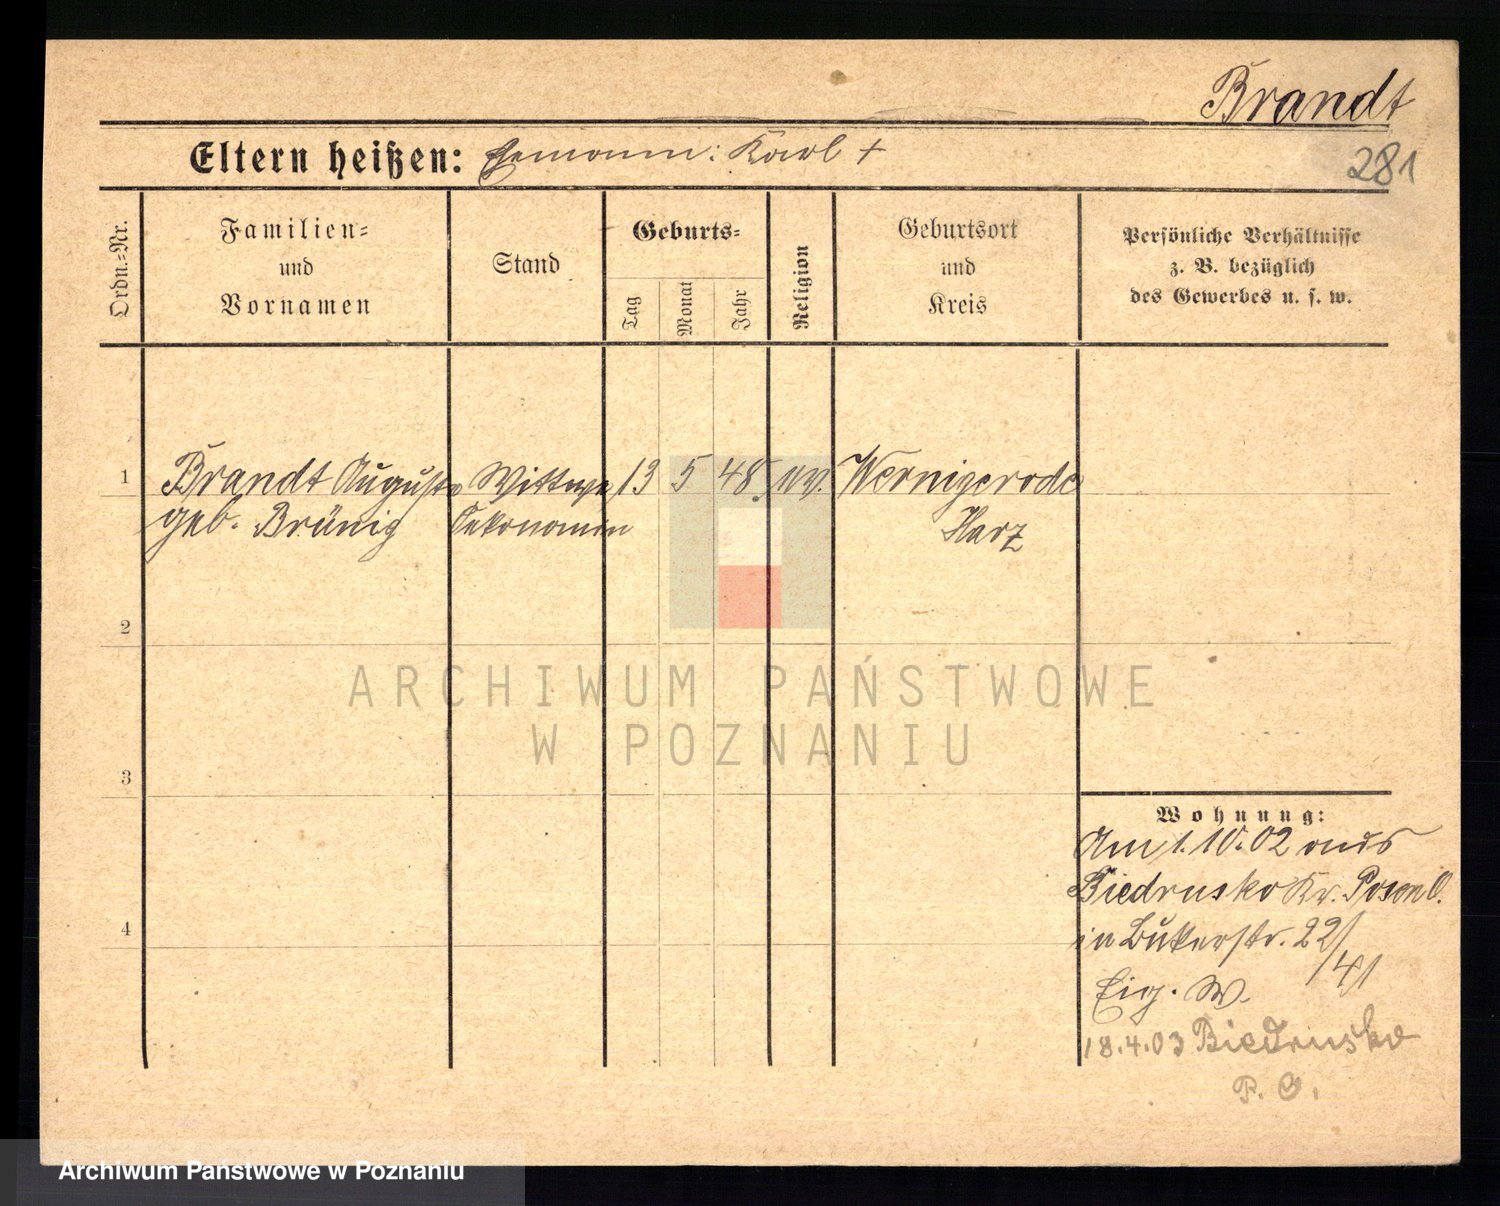 Brandt
281
Eltern heißen: Ehemann: Karl +
Ordn.-Nr.
Familien-
und
Vornamen
Stand
Geburts-
Tag
Monat
Jahr
Religion
Geburtsort
und
Kreis
Persönliche Verhältnisse
z. B. bezüglich
des Gewerbes u. s. w.
1 Brandt Auguste Wittwe 13 5 48 ev. Wernigerode
geb. Brünig Oekonomin Harz
2
ARCHIWUM PAŃSTWOWE
W POZNANIU
3
Wohnung:
Am 1.10.02 aus
Biedrusko Kr. Posen O.
in Bukerstr. 22/
/41
4
Eig. W.
18.4.03 Biedrusko
P. O.
Archiwum Państwowe w Poznaniu